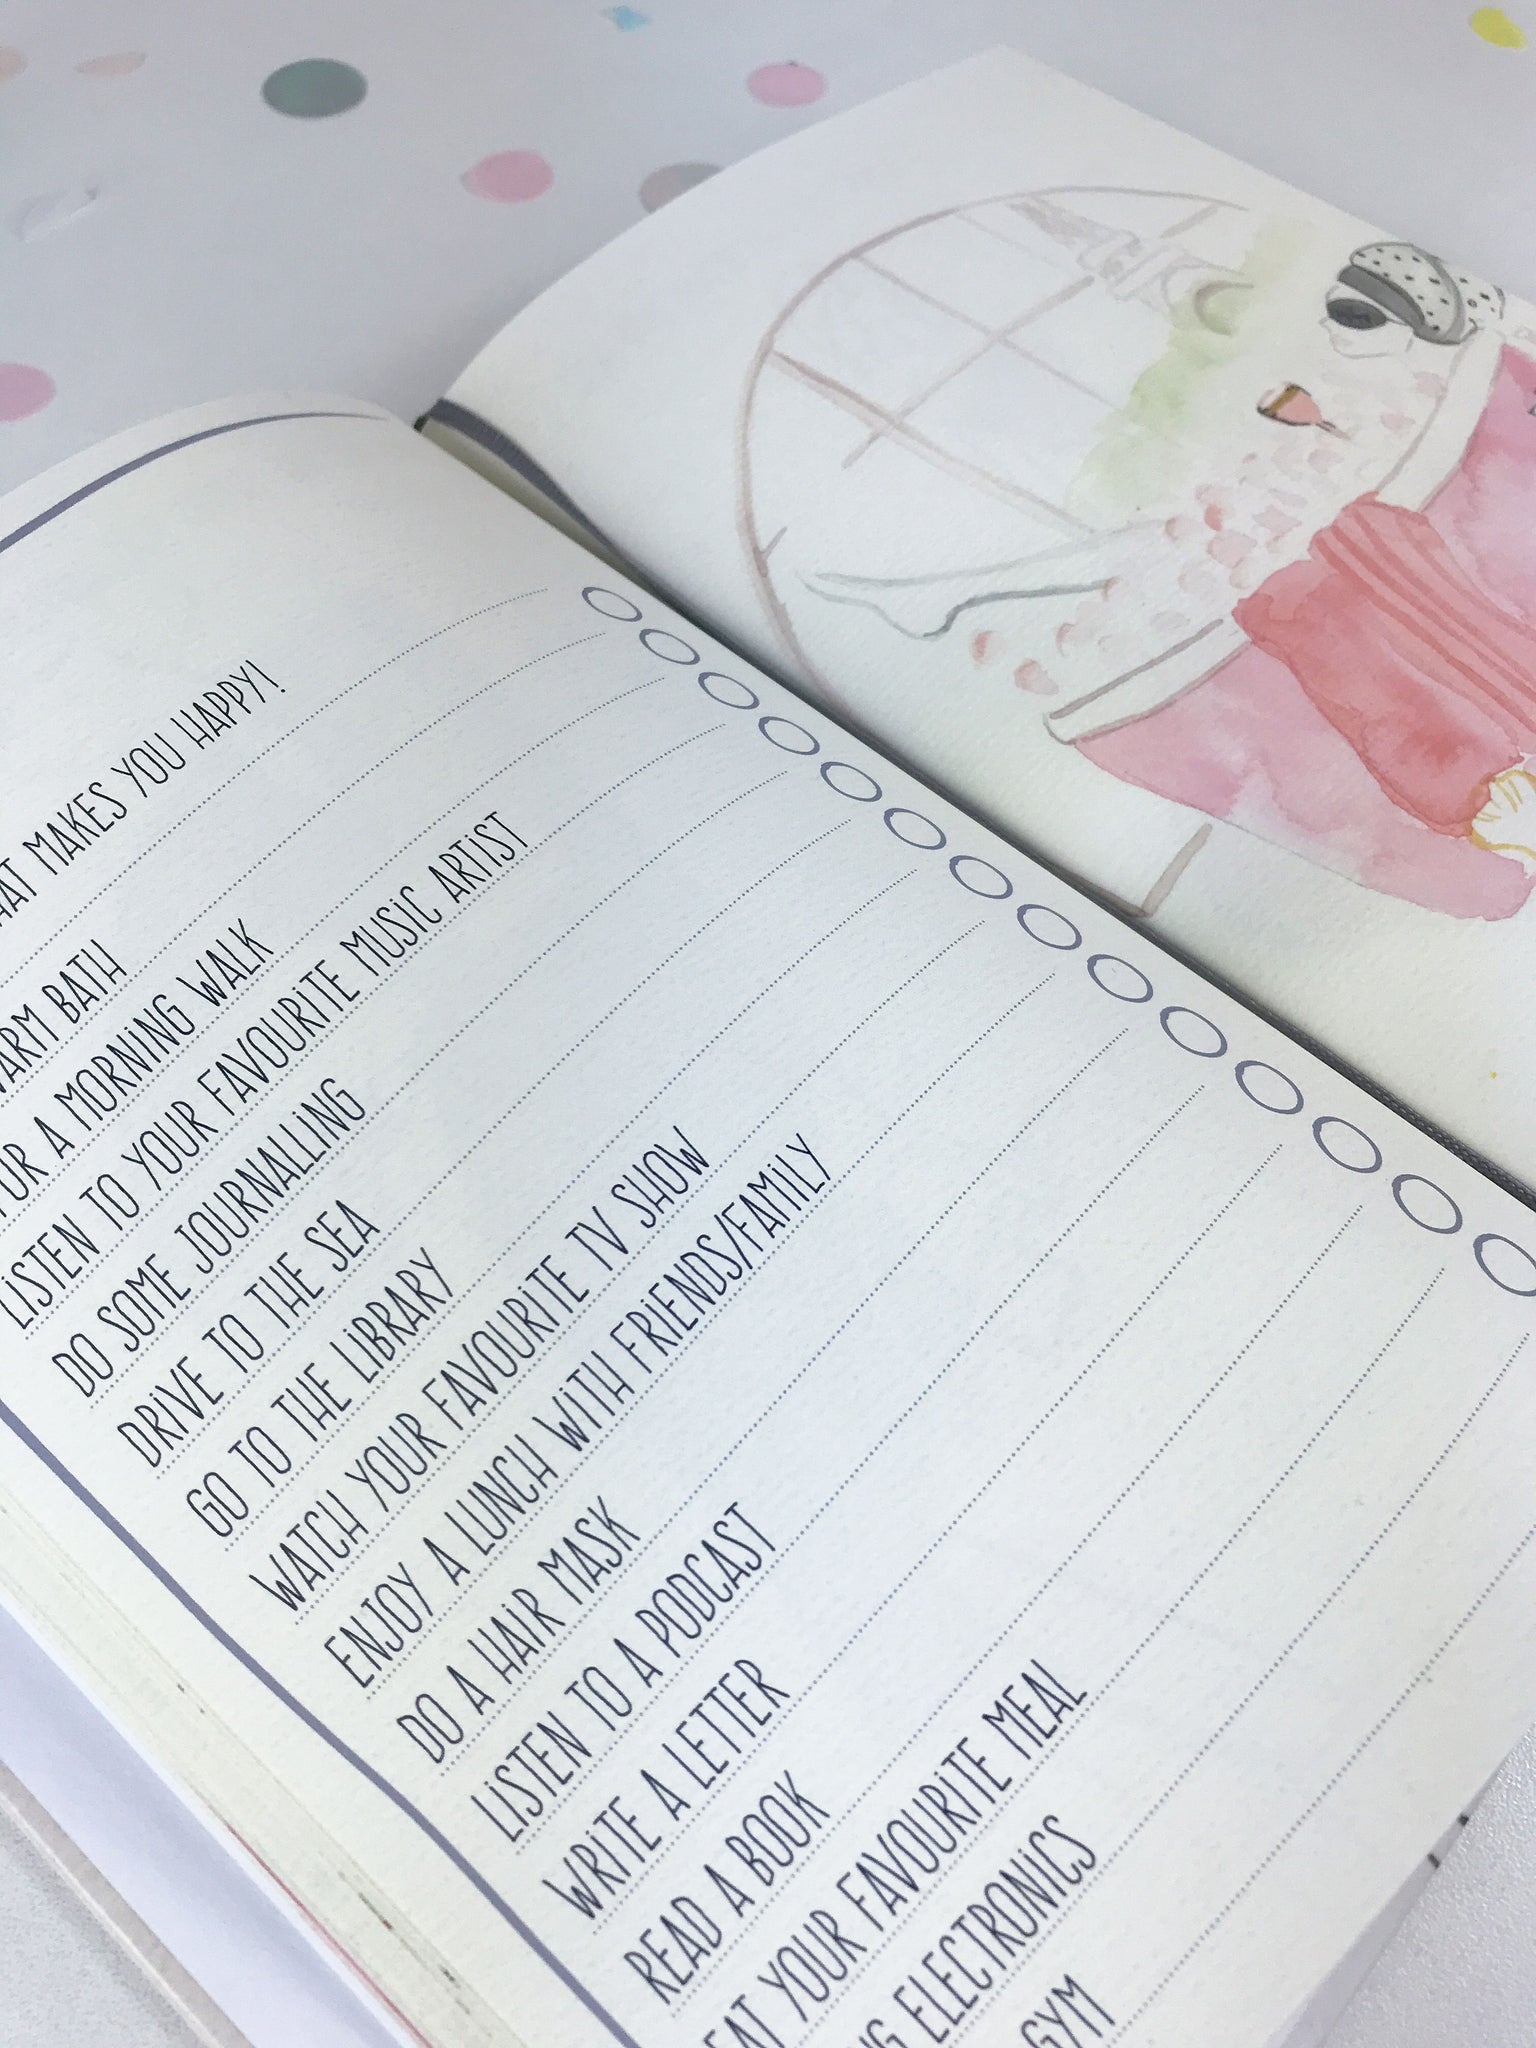 MAKES YOU HAPPY!
BATH
A MORNING WALK
LISTEN TO YOUR FAVOURITE MUSIC ARTIST
DO SOME JOURNALLING
DRIVE TO THE SEA
GO TO THE LIBRARY
WATCH YOUR FAVOURITE TV SHOW
ENJOY A LUNCH WITH FRIENDS/FAMILY
DO A HAIR MASK
LISTEN TO A PODCAST
WRITE A LETTER
READ A BOOK
EAT YOUR FAVOURITE MEAL
ELECTRONICS
GYM